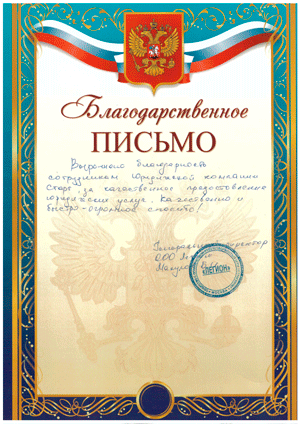 Благодарственное
ПИСЬМО
Выражаю благодарность
сотрудникам Юридической компании
Старт за качественное предоставление
юридических услуг. Качественно и
быстро - огромное спасибо!
Генеральный директор
ООО
"ЛЕГИОН"